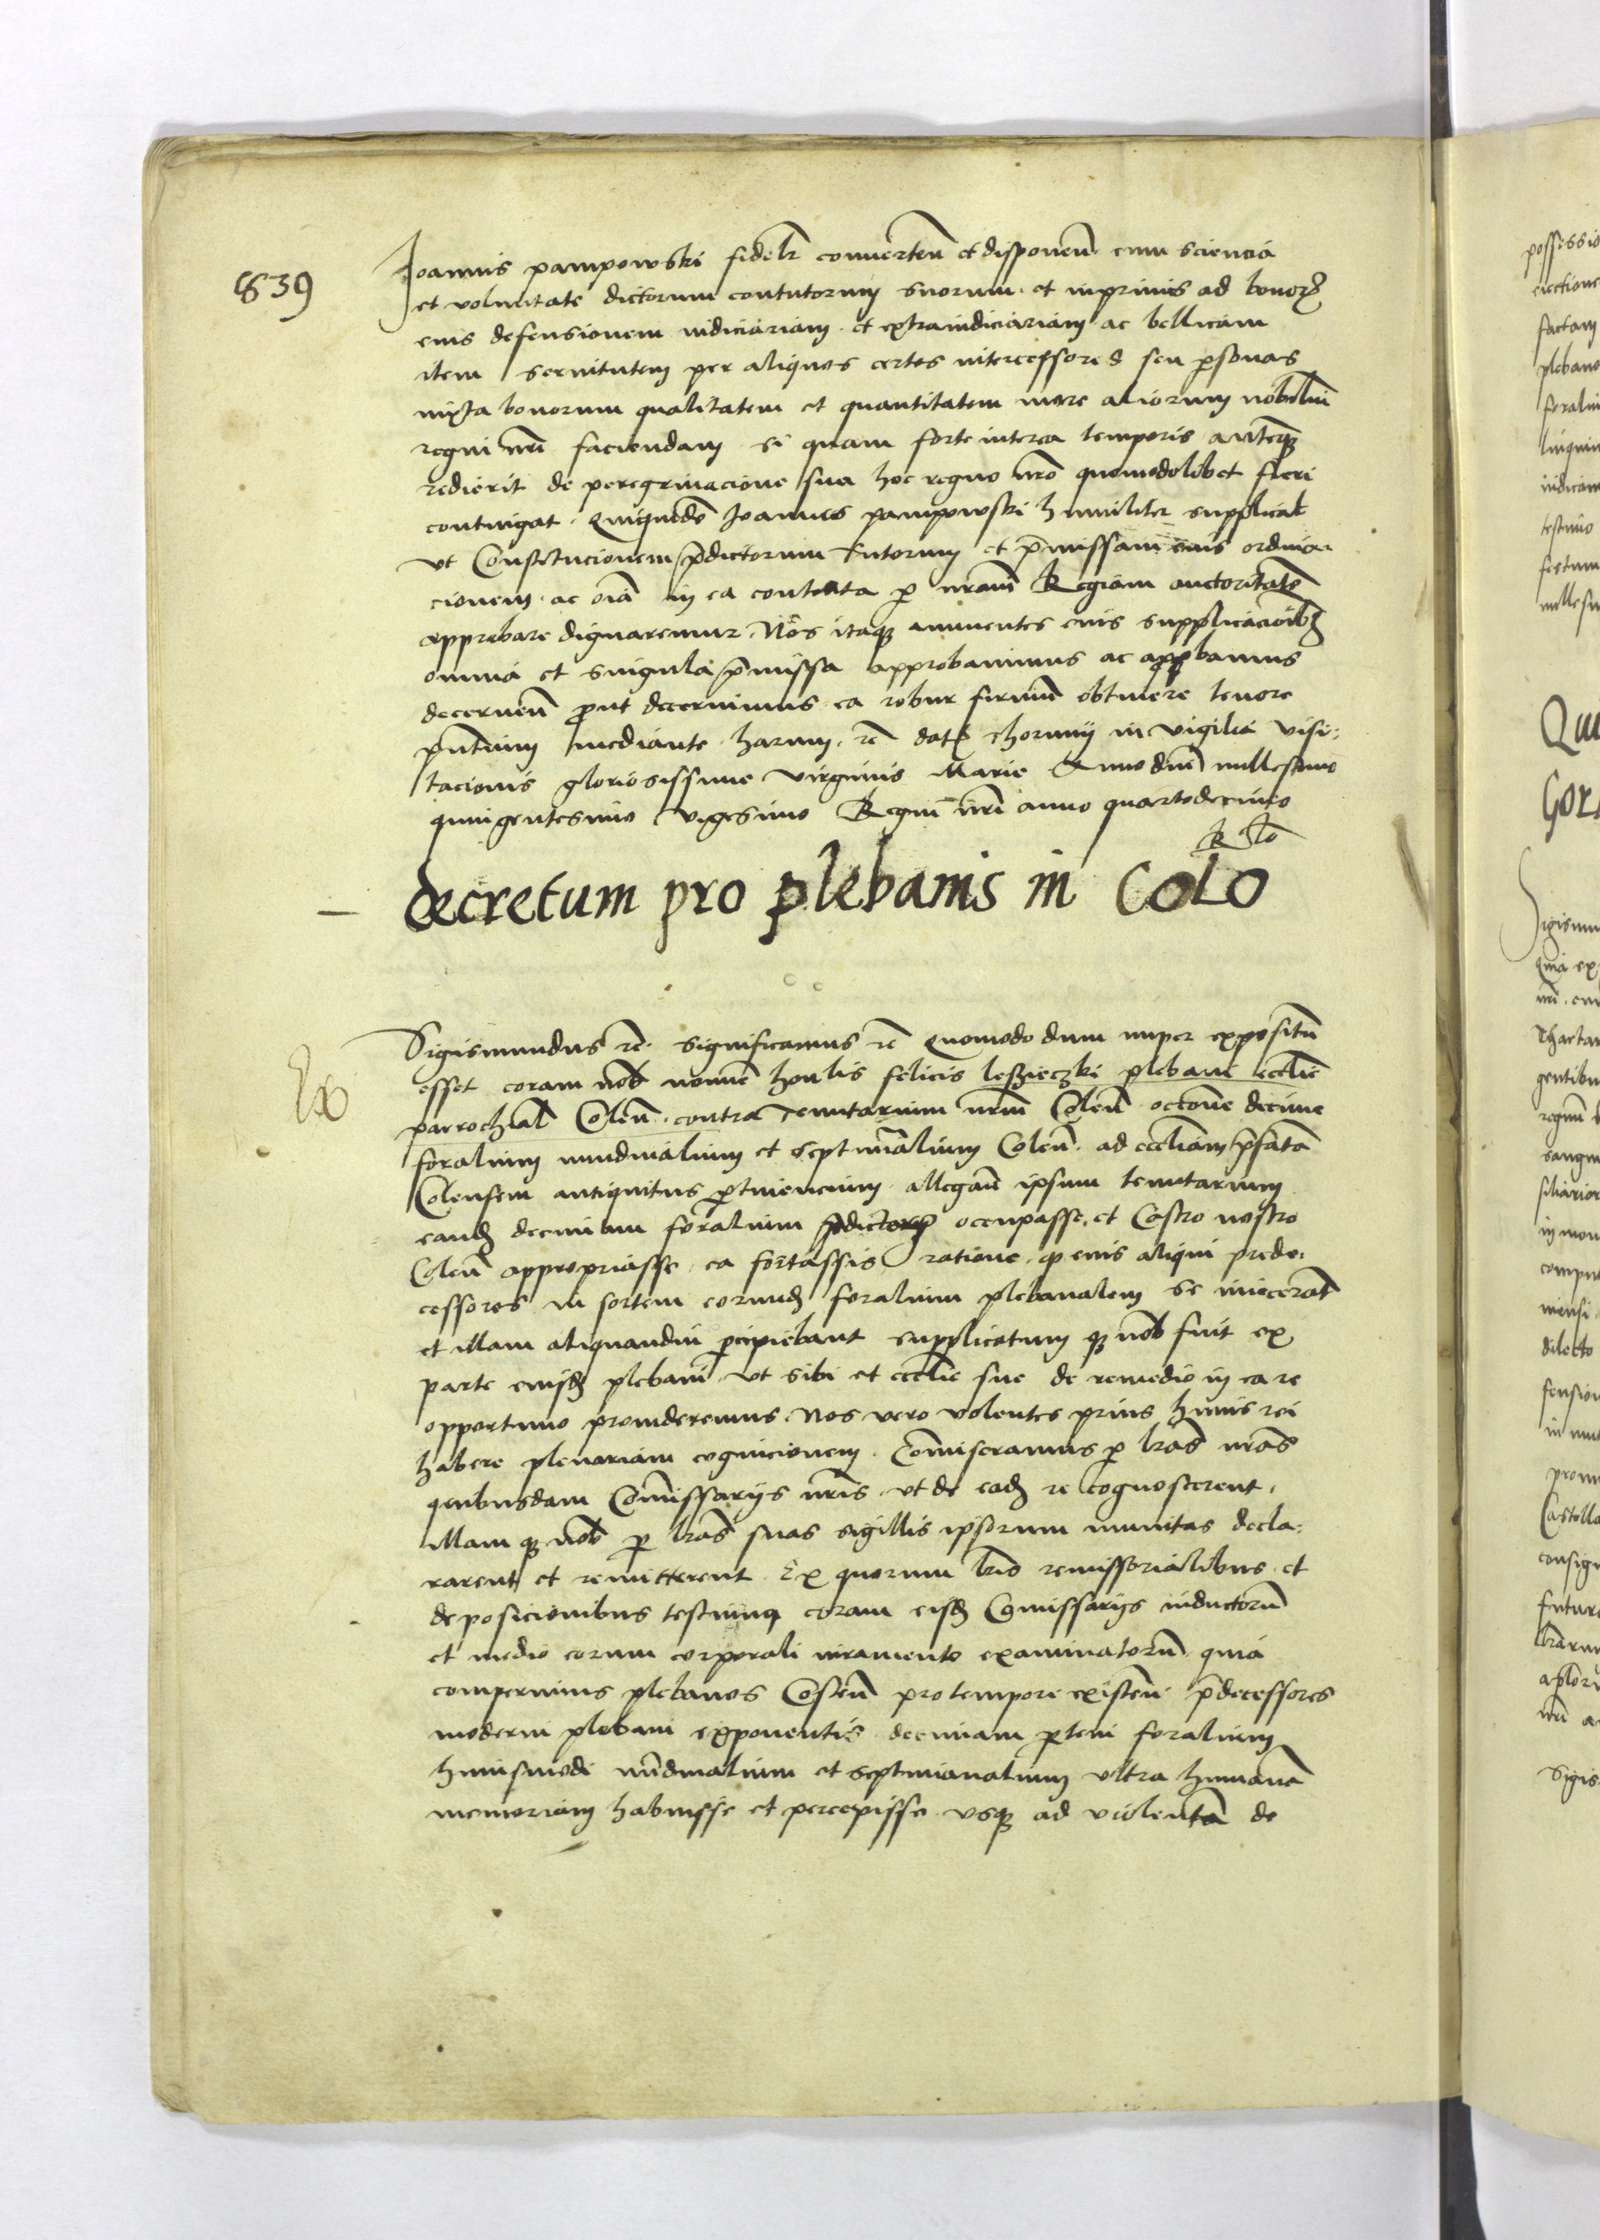 839
Joannis pampowski fidelr̄ convertend̄ et disponend̄ cum sciencia
et voluntate dictorum contutorum suorum et inprimis ad bonor̄
eius defensionem iudiciariam et extraiudiciariam ac bellicam
item servitutem per aliquos certos intercessores seu p̄sonas
iuxta bonorum qualitatem et quantitatem more aliorum nobiliū
regni nr̄i faciendam si quam forte interea temporis anteqȝ
redierit de peregrinacione sua hoc regno nr̄o quomodolibet fieri
contingat. Quiquidē Joannes pampowski humiliter supplicat
ut Constitucionem p̄dictorum Tutorum et p̄missam eius ordina-
cionem ac oīa in ea contenta p̄ nr̄am Regiam auctoritatē
approbare dignaremur. Nos itaqȝ annuentes eius supplicacioībȝ
omnia et singula p̄missa approbavimus ac app̄bamus
decernen̄ prout decernimus ea robur firmū obtinere tenore
p̄ntium mediante harum. rē datȝ Thorunij in vigilia visi-
tacionis gloriosissime virginis Marie Anno dnī millesimo
quingentesimo vigesimo Regni nr̄i anno quartodecimo
Rlō
decretum pro plebanis in COLO
Ex
Sigismundus rē. significamus rē Quomodo dum nuper expositū
esset coram nob nomīe honlis felicis leszieczki plebani ecclīe
parrochial Coleñ. contra Tenutarium nr̄m Coleñ occōne decime
foralium nundinalium et septimalium Coleñ. ad eccliam p̄fatā
Colensem antiquitus p̄tinencium allegan̄ ipsum tenutarium
eandȝ decimam foralium p̄dictorȝ occupasse. et Castro nostro
Coleñ appropriasse ea fortassis ratione qȝ eius aliqui prede-
cessores in sortem eorundȝ foralium plebanalem se iniecerāt
et illam aliquandiu p̄cipiebant supplicatum qȝ nob fuit ex
parte eiusdȝ plebani ut sibi et ecclie sue de remedio in ea re
opportuno provideremus. Nos vero volentes prius huius rei
habere plenariam cognicionem. Cōmiseramus p̄ lrās nr̄as
quibusdam Cōmissarijs nr̄is ut de eadȝ re cognoscerent.
illam qȝ nob p̄ lrās suas sigillis ipsorum munitas decla-
rarent et remitterent. Ex quorum lris remissorialibus et
deposicionibus testium coram eisdȝ Cōmissarijs inductorū
et medio eorum corporali iuramento examinatorū quia
comperimus plebanos Coleñ pro tempore existen̄ p̄decessores
moderni plebani exponentis decimam p̄tem foralium
huiusmodi nundinalium et septimanalium ultra humanā
memoriam habuisse et percepisse usqȝ ad violentā de